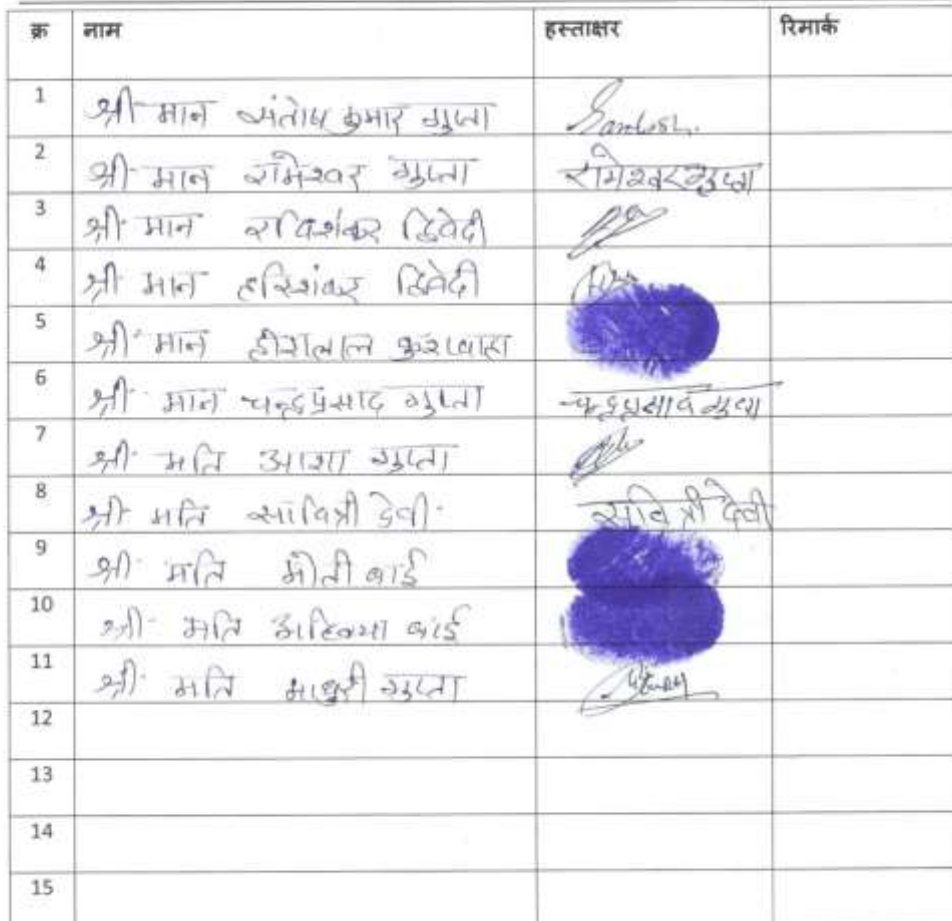 क्र नाम हस्ताक्षर रिमार्क
1 श्री मान संतोष कुमार गुप्ता Santosh.
2 श्री मान रामेश्वर गुप्ता रामेश्वर गुप्ता
3 श्री मान रविशंकर द्विवेदी
4 श्री मान हरिशंकर द्विवेदी
5 श्री मान हीरालाल कुशवाहा
6 श्री मान चन्द्रप्रसाद गुप्ता चन्द्रप्रसाद गुप्ता
7 श्री मति आशा गुप्ता
8 श्री मति सावित्री देवी सावित्री देवी
9 श्री मति मोती बाई
10 श्री मति अहिल्या बाई
11 श्री मति माधुरी गुप्ता
12
13
14
15